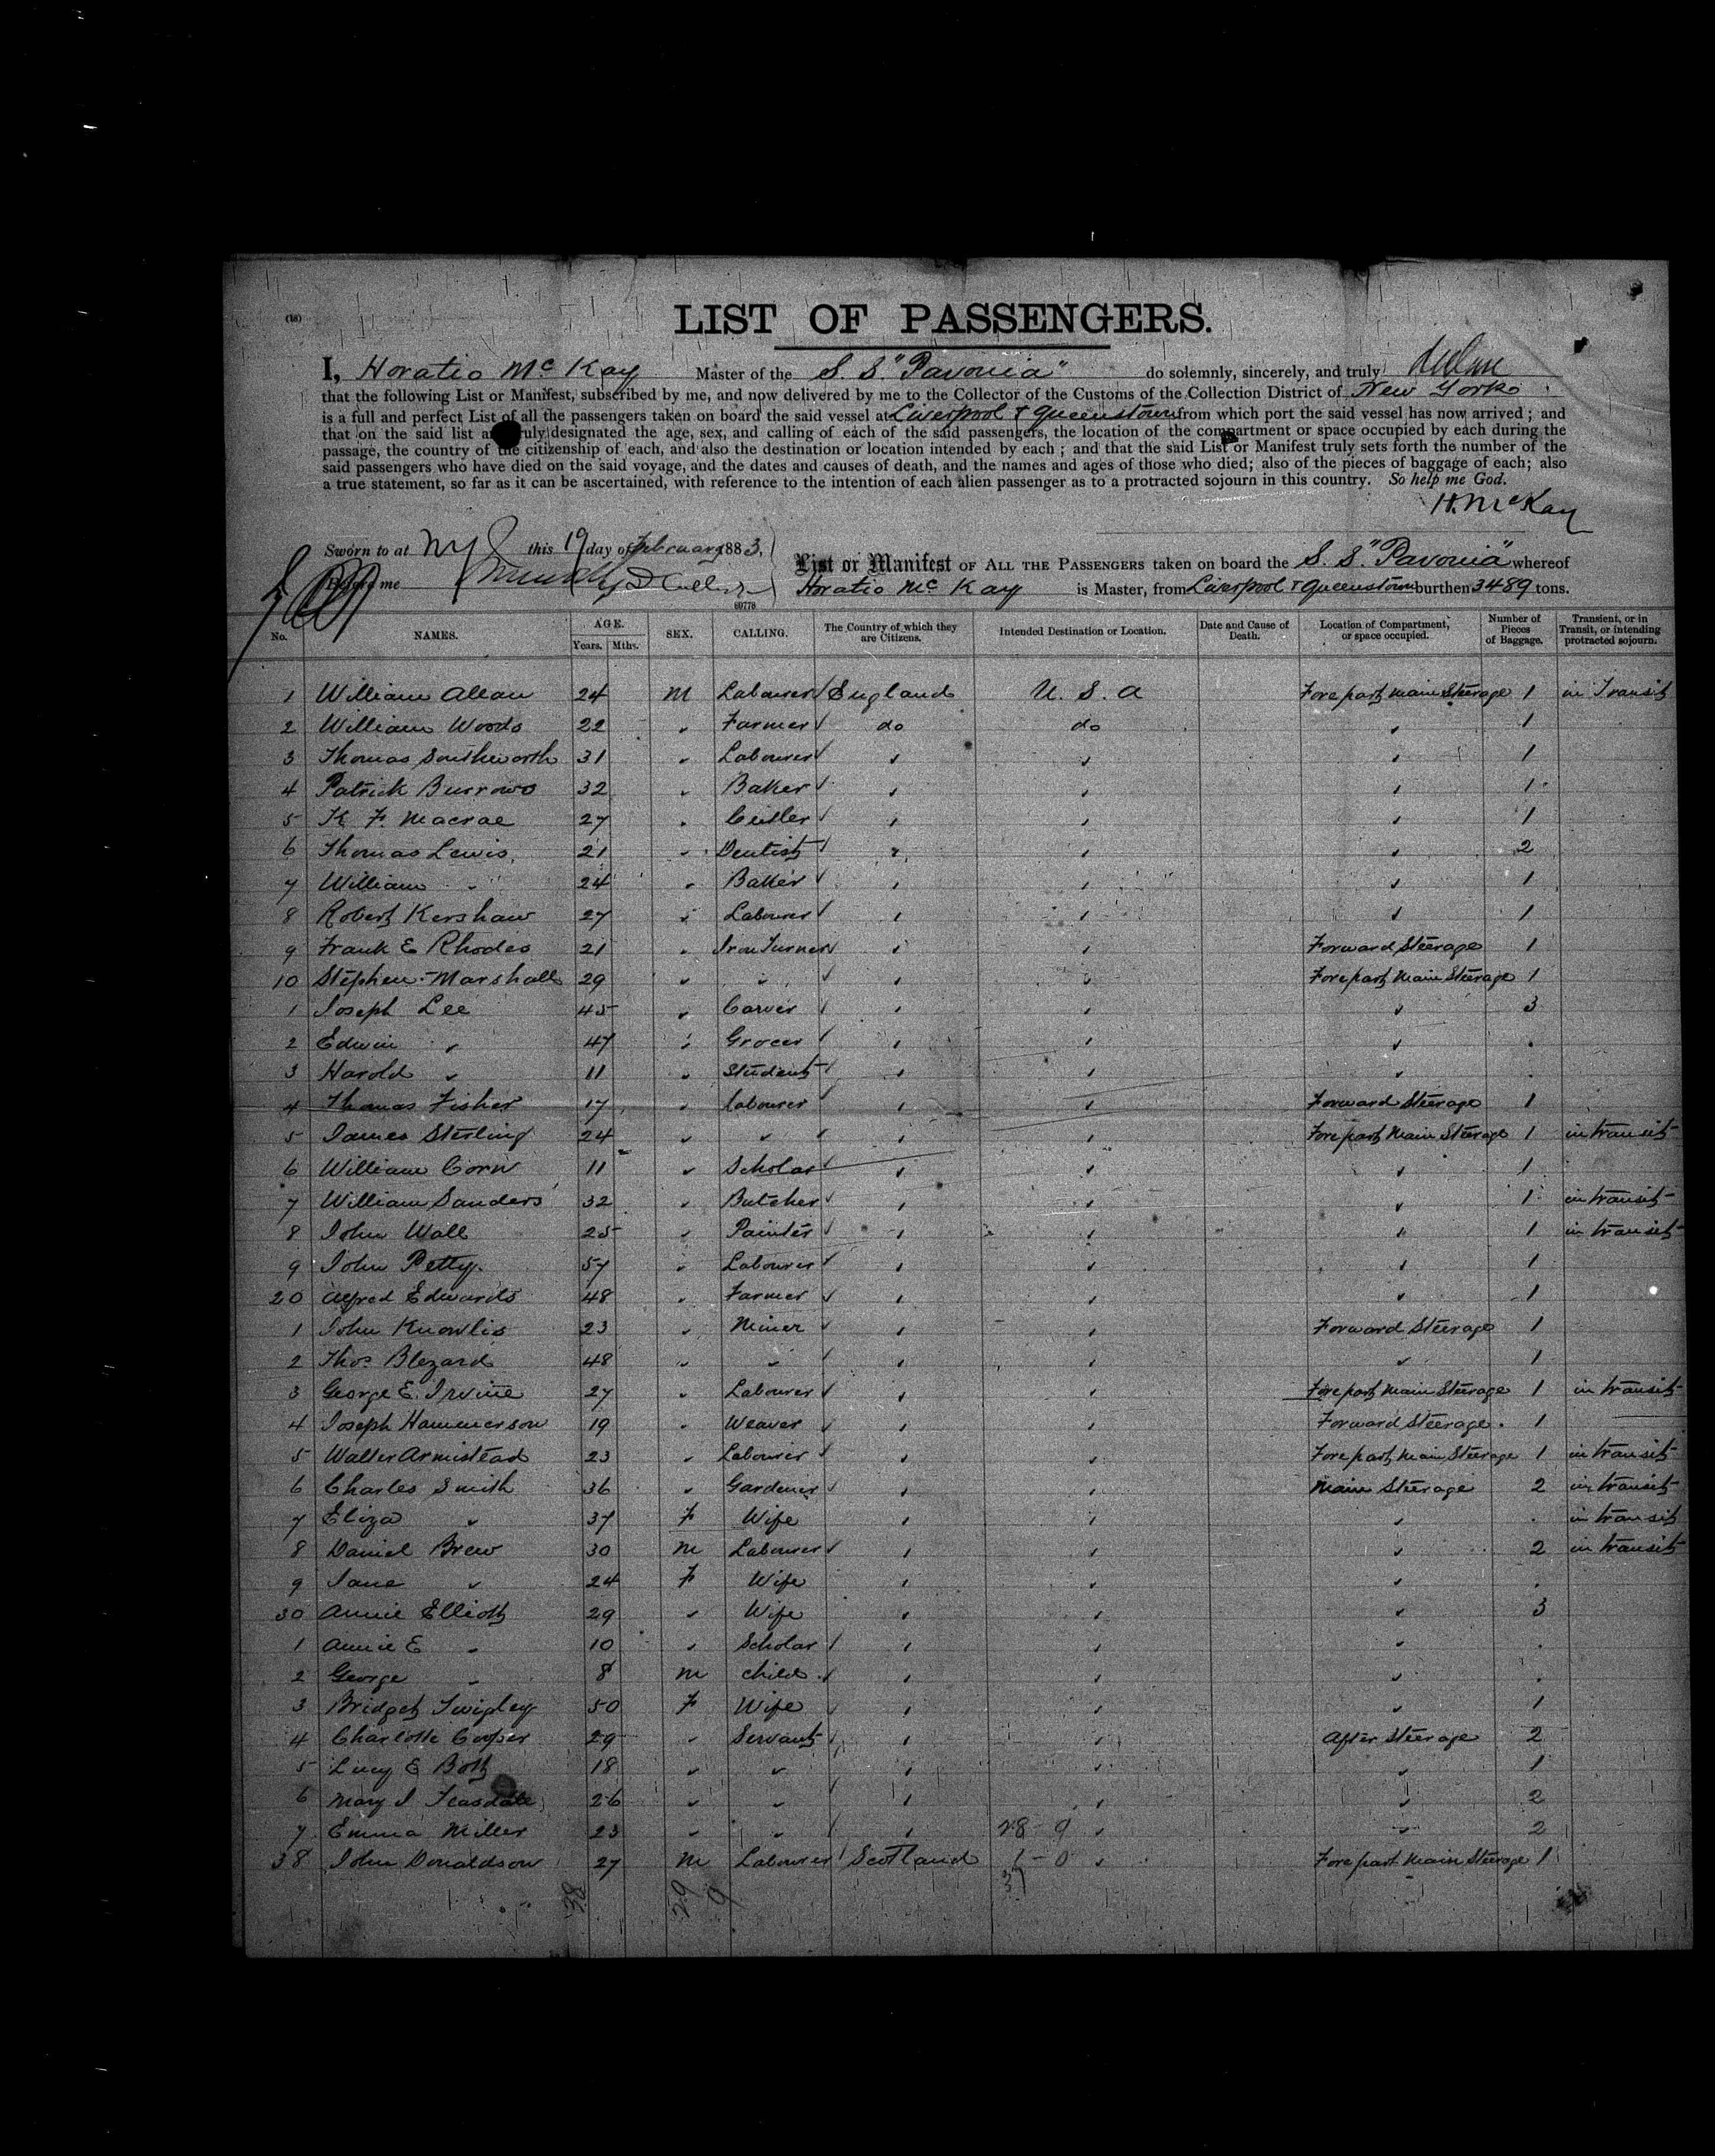 (18)
LIST OF PASSENGERS.
I, Horatio McKay Master of the S. S. "Pavonia" do solemnly, sincerely, and truly
that the following List or Manifest, subscribed by me, and now delivered by me to the Collector of the Customs of the Collection District of New York
is a full and perfect List of all the passengers taken on board the said vessel at Liverpool & Queenstown from which port the said vessel has now arrived ; and
that on the said list are truly designated the age, sex, and calling of each of the said passengers, the location of the compartment or space occupied by each during the
passage, the country of the citizenship of each, and also the destination or location intended by each ; and that the said List or Manifest truly sets forth the number of the
said passengers who have died on the said voyage, and the dates and causes of death, and the names and ages of those who died; also of the pieces of baggage of each; also
a true statement, so far as it can be ascertained, with reference to the intention of each alien passenger as to a protracted sojourn in this country. So help me God.
H. McKay
Sworn to at NY this 19 day of February 1883,
Before me
List or Manifest OF ALL THE PASSENGERS taken on board the S. S. "Pavonia" whereof
Horatio McKay is Master, from Liverpool & Queenstown burthen 3489 tons.
60778
No. NAMES. AGE. Years. Mths. SEX. CALLING. The Country of which they are Citizens. Intended Destination or Location. Date and Cause of Death. Location of Compartment, or space occupied. Number of Pieces of Baggage. Transient, or in Transit, or intending protracted sojourn.
1 William Allan 24 M Labourer England U. S. A Fore part main Steerage 1 in Transit
2 William Woods 22 " Farmer do do " 1
3 Thomas Southworth 31 " Labourer " " " 1
4 Patrick Burrows 32 " Baker " " " 1
5 K. F. Macrae 27 " Cutler " " " 1
6 Thomas Lewis 21 " Dentist " " " 2
7 William " 24 " Baker " " " 1
8 Robert Kershaw 27 " Labourer " " " 1
9 Frank E Rhodes 21 " Iron Turner " " Forward Steerage 1
10 Stephen Marshall 29 " " " " Fore part Main Steerage 1
1 Joseph Lee 45 " Carver " " " 3
2 Edwin " 47 " Grocer " " " "
3 Harold " 11 " Student " " " "
4 Thomas Fisher 17 " Labourer " " Forward Steerage 1
5 James Sterling 24 " " " " Fore part Main Steerage 1 in transit
6 William Corn 11 " Scholar " " " 1
7 William Sanders 32 " Butcher " " " 1 in transit
8 John Wall 25 " Painter " " " 1 in transit
9 John Petty 57 " Labourer " " " 1
20 Alfred Edwards 48 " Farmer " " " 1
1 John Knowlis 23 " Miner " " Forward Steerage 1
2 Thos. Blezard 48 " " " " " 1
3 George E. Irvine 27 " Labourer " " Fore part Main Steerage 1 in transit
4 Joseph Hammerson 19 " Weaver " " Forward Steerage 1
5 Walter Armistead 23 " Labourer " " Fore part Main Steerage 1 in transit
6 Charles Smith 36 " Gardener " " Main Steerage 2 in transit
7 Eliza " 37 F Wife " " " " in transit
8 Daniel Brew 30 M Labourer " " " 2 in transit
9 Jane " 24 F Wife " " " "
30 Annie Elliott 29 " Wife " " " 3
1 Annie E " 10 " Scholar " " " "
2 George " 8 M child " " " "
3 Bridget Twigley 50 F Wife " " " 1
4 Charlotte Cooper 29 " Servant " " After Steerage 2
5 Lucy E Bott 18 " " " " " 1
6 Mary J Teasdale 26 " " " " " 2
7 Emma Miller 23 " " " 28 - 9 " " 2
38 John Donaldson 27 M Labourer Scotland 1 - 0 " Fore part Main Steerage 1
38 29 9 37